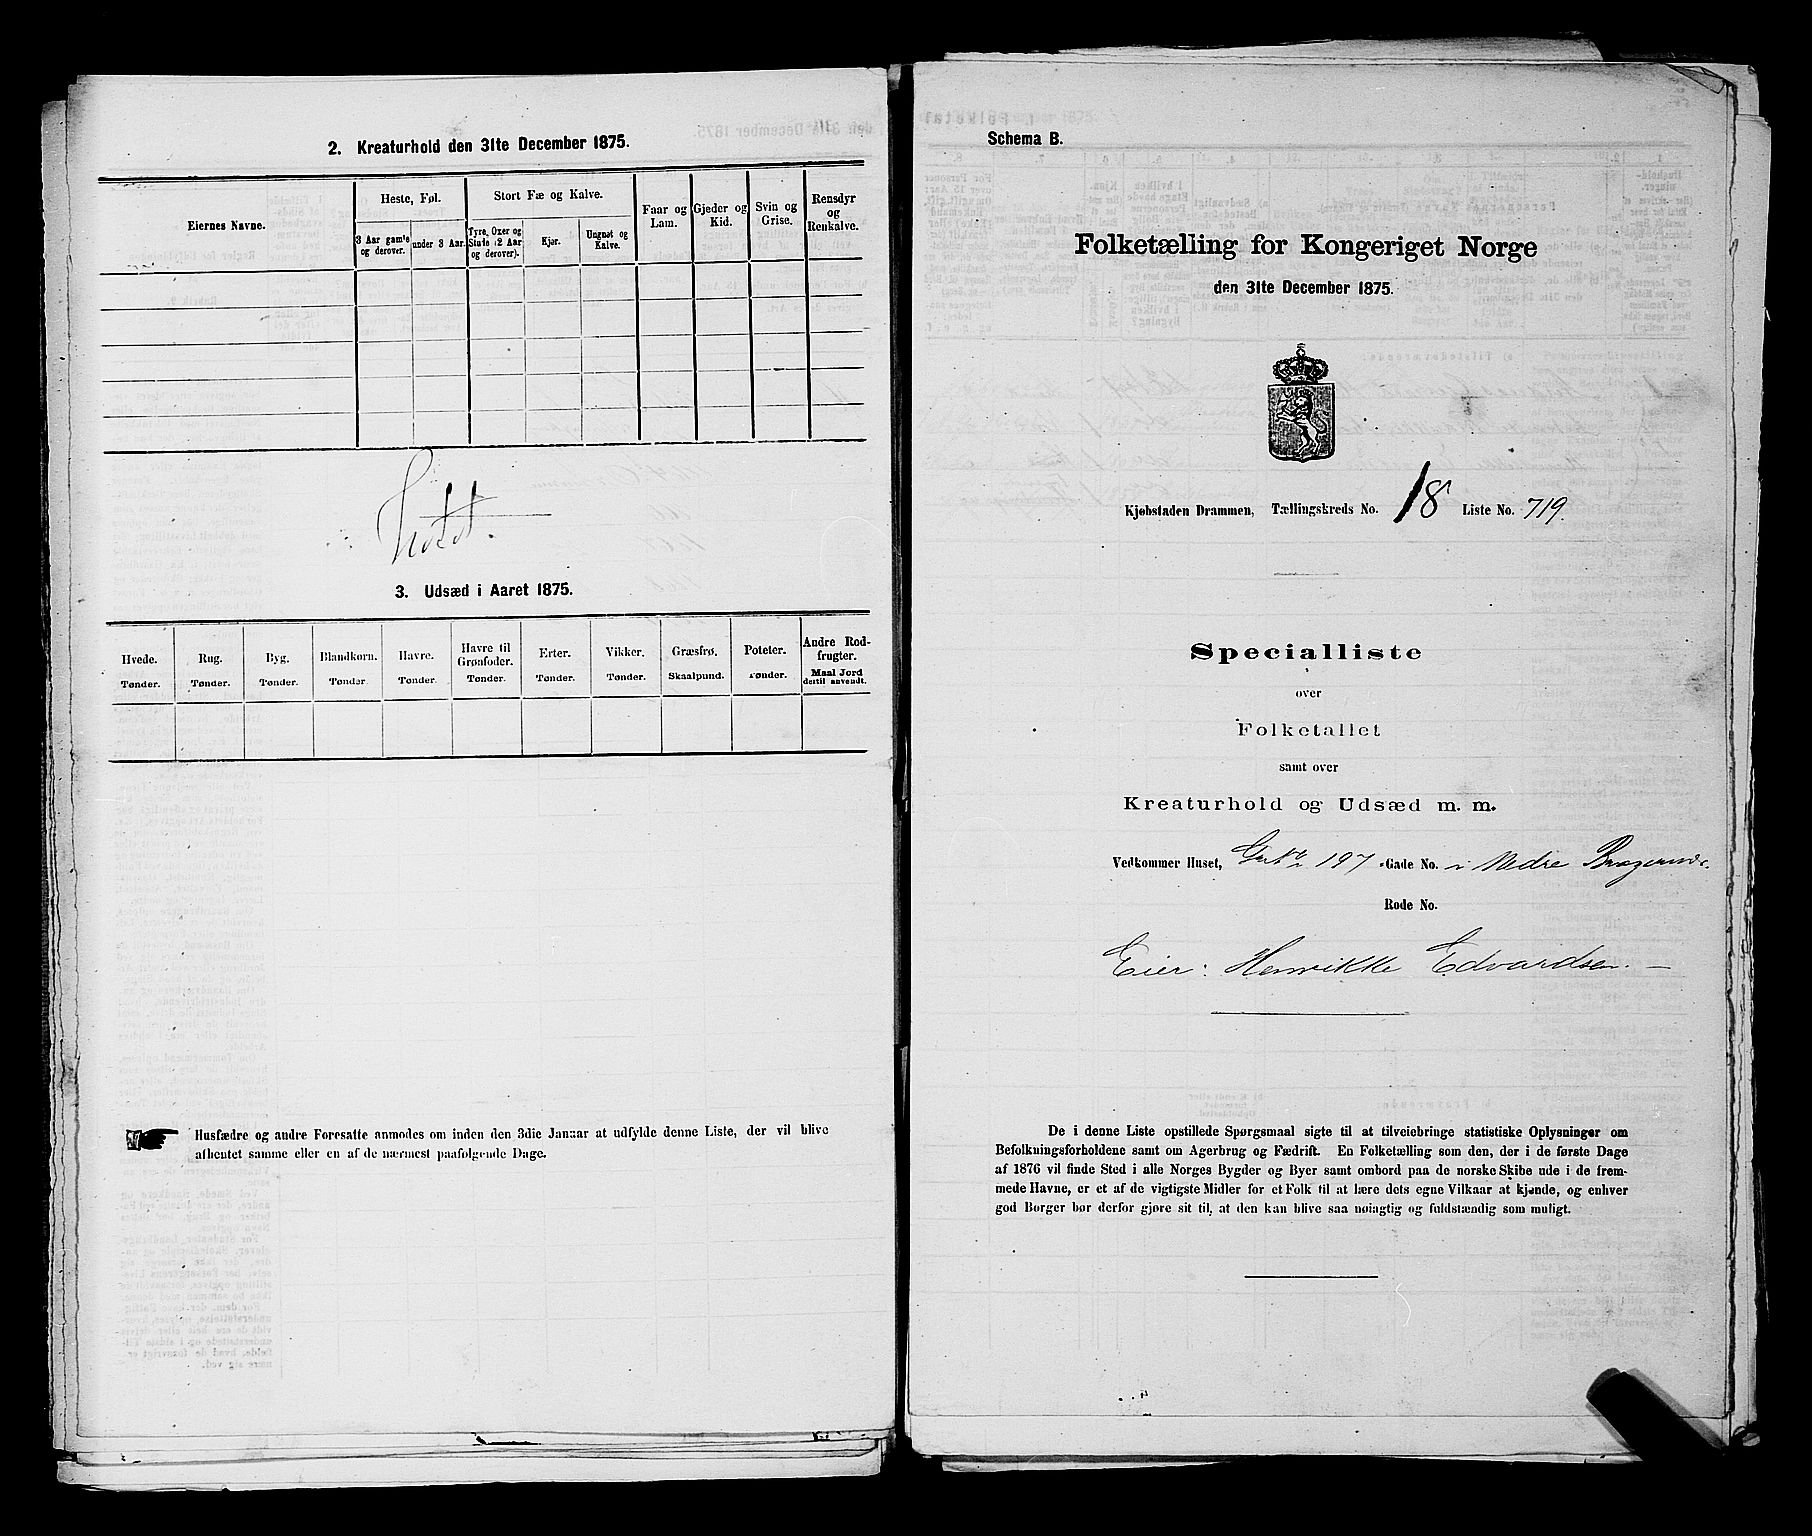 2. Kreaturhold den 31te December 1875.
Eiernes Navne.
Heste, Føl.
Stort Fæ og Kalve.
Faar og Lam.
Gjeder og Kid.
Svin og Grise.
Rensdyr og Renkalve.
3 Aar gamle og derover.
under 3 Aar.
Tyre, Oxer og Stude (2 Aar og derover).
Kjør.
Ungnøt og Kalve.
3. Udsæd i Aaret 1875.
Hvede. Tønder.
Rug. Tønder.
Byg. Tønder.
Blandkorn. Tønder.
Havre. Tønder.
Havre til Grønfoder. Tønder.
Erter. Tønder.
Vikker. Tønder.
Græsfrø. Skaalpund.
Poteter. Tønder.
Andre Rodfrugter. Maal Jord dertil anvendt.
Husfædre og andre Foresatte anmodes om inden den 3die Januar at udfylde denne Liste, der vil blive
afhentet samme eller en af de nærmest paafølgende Dage.
Schema B.
Folketælling for Kongeriget Norge
den 31te December 1875.
Kjøbstaden Drammen, Tællingskreds No. 18 Liste No. 719.
Specialliste
over
Folketallet
samt over
Kreaturhold og Udsæd m. m.
Vedkommer Huset, 197 Gade No. i Nedre Bragernes
Rode No.
Eier: Henrikke Edvardsen.
De i denne Liste opstillede Spørgsmaal sigte til at tilveiebringe statistiske Oplysninger om
Befolkningsforholdene samt om Agerbrug og Fædrift. En Folketælling som den, der i de første Dage
af 1876 vil finde Sted i alle Norges Bygder og Byer samt ombord paa de norske Skibe ude i de frem-
mede Havne, er et af de vigtigste Midler for et Folk til at lære dets egne Vilkaar at kjende, og enhver
god Borger bør derfor gjøre sit til, at den kan blive saa nøiagtig og fuldstændig som muligt.